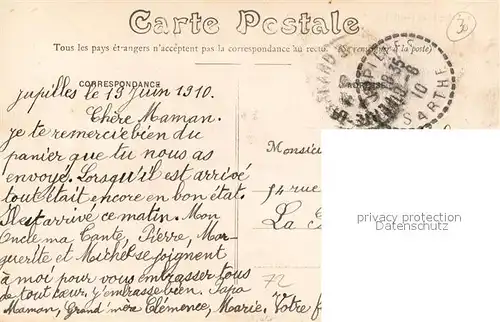 Carte Postale
Tous les pays étrangers n'acceptent pas la correspondance au recto. (Se renseigner à la poste)
CORRESPONDANCE
jupilles le 13 Juin 1910.
Chère Maman.
je te remercie bien du
panier que tu nous as
envoyé. Lorsqu'il est arrivé
tout était encore en bon état.
Il est arrivé ce matin. Mon
Oncle ma Tante, Pierre, Mar-
guerite et Michel se joignent
à moi pour vous embrasser tous
de tout cœur. J'embrasse bien. Papa
Maman, Grand'mère Clémence, Marie. Votre
SARTHE
10
Monsieu
14 rue
La
72
30
privacy protection
Datenschutz